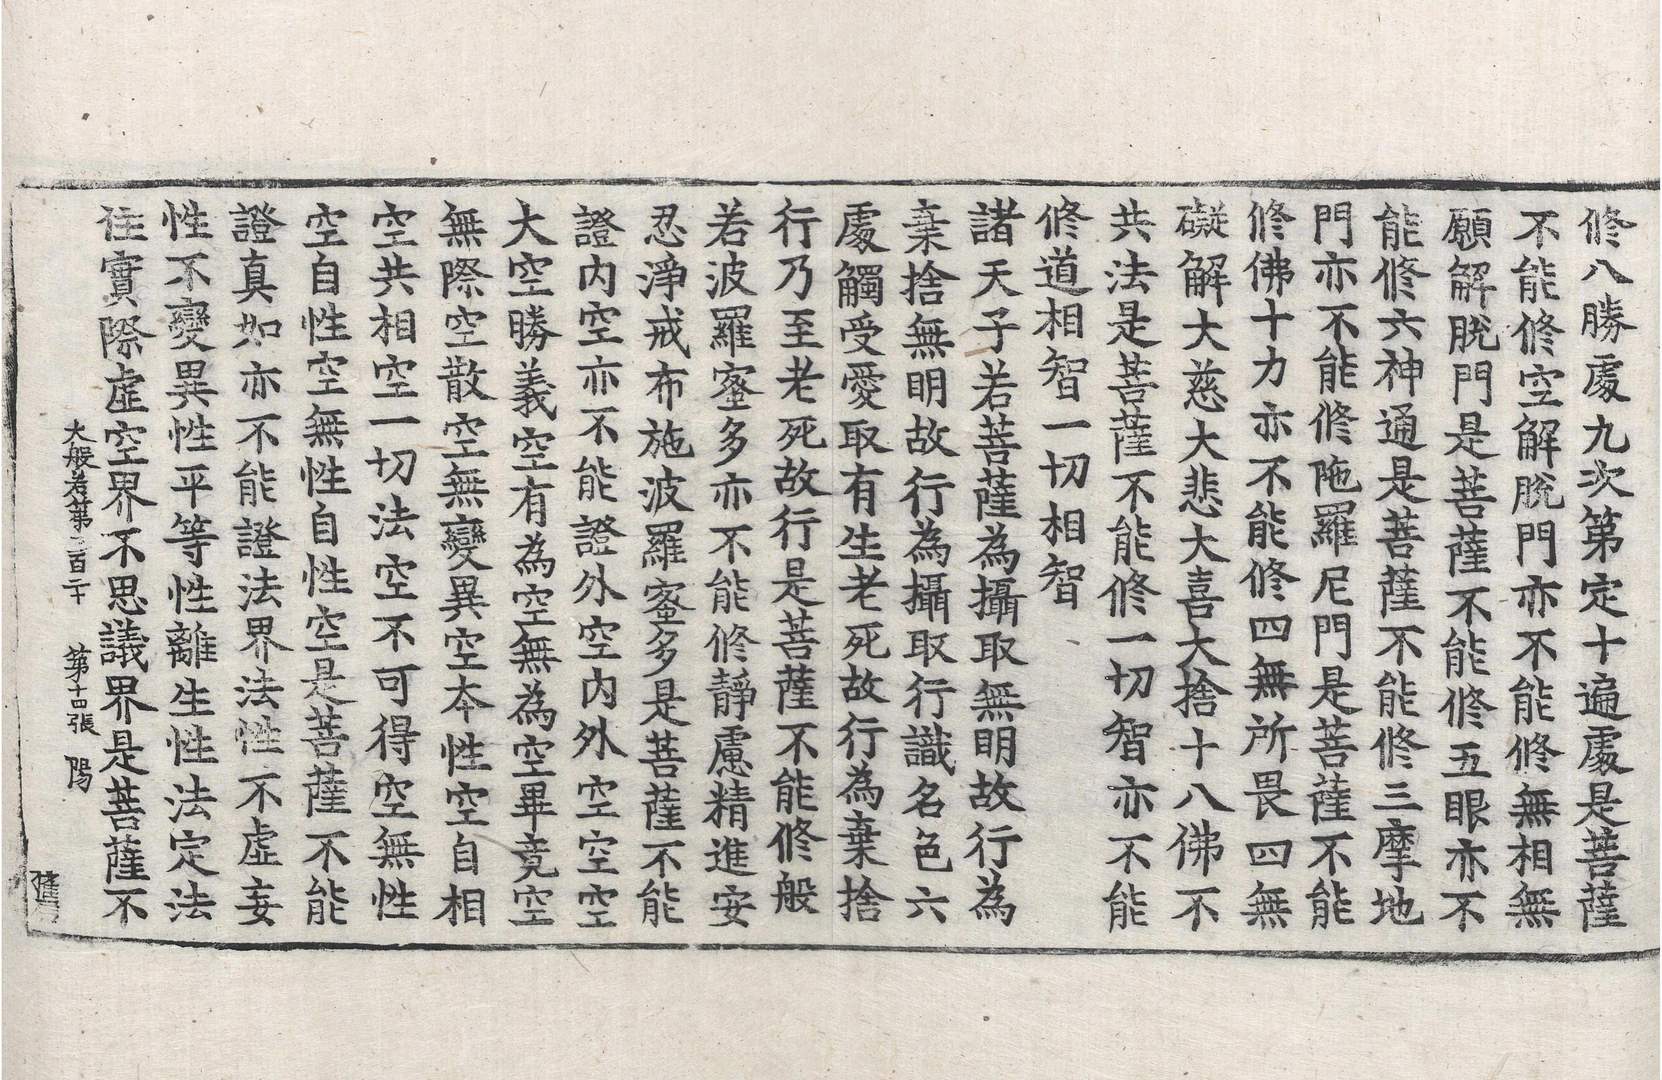 修八勝處九次第定十遍處是菩薩
不能修空解脫門亦不能修無相無
願解脫門是菩薩不能修五眼亦不
能修六神通是菩薩不能修三摩地
門亦不能修陁羅尼門是菩薩不能
修佛十力亦不能修四無所畏四無
礙解大慈大悲大喜大捨十八佛不
共法是菩薩不能修一切智亦不能
修道相智一切相智
諸天子若菩薩為攝取無明故行為
棄捨無明故行為攝取行識名色六
處觸受愛取有生老死故行為棄捨
行乃至老死故行是菩薩不能修般
若波羅蜜多亦不能修靜慮精進安
忍淨戒布施波羅蜜多是菩薩不能
證內空亦不能證外空內外空空空
大空勝義空有為空無為空畢竟空
無際空散空無變異空本性空自相
空共相空一切法空不可得空無性
空自性空無性自性空是菩薩不能
證真如亦不能證法界法性不虛妄
性不變異性平等性離生性法定法
住實際虛空界不思議界是菩薩不
大般若第百二十 第十四張 陽